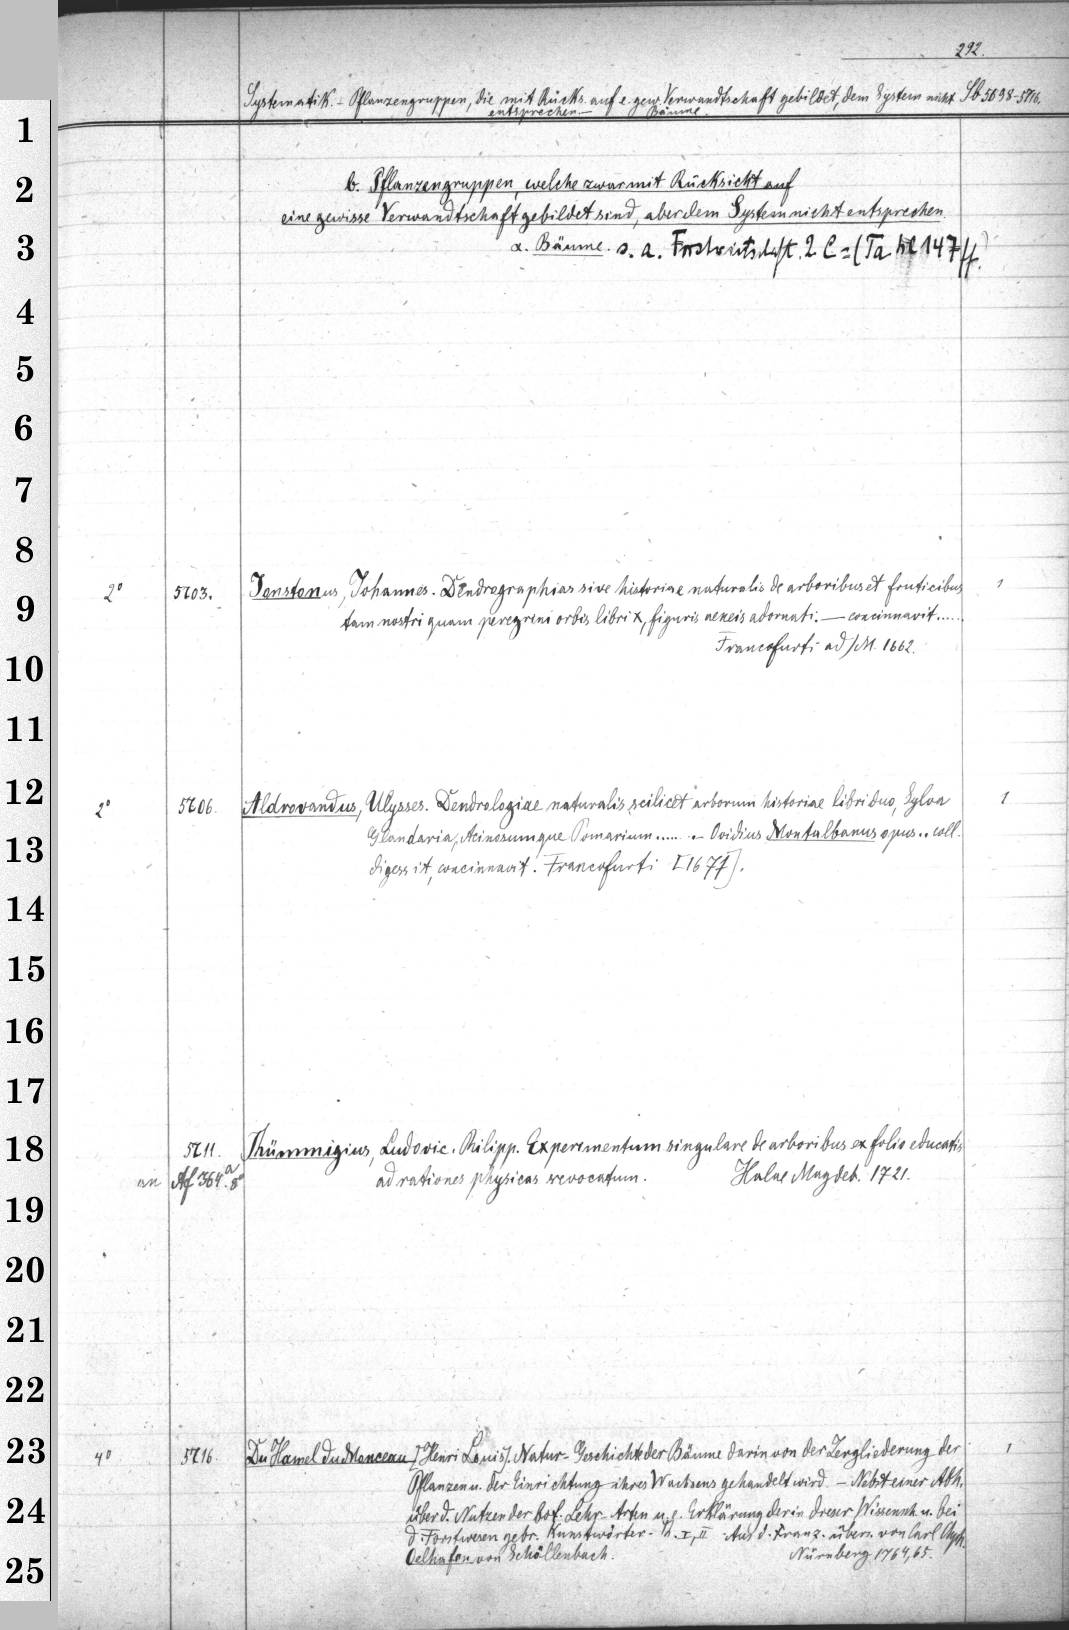 292.
Systematik. - Pflanzengruppen, die mit Rücks. auf e. gew. Verwandtschaft gebildet, dem System nicht Sb 5698-5716.
entsprechen.— Bäume.
1
b. Pflanzengruppen, welche zwar mit Rücksicht auf
2
eine gewisse Verwandtschaft gebildet sind, aber dem System nicht entsprechen.
3
α. Bäume. s. a. Forstwirtschaft. 2 C = (Ta 147 ff.)
4
5
6
7
8
2° 5703. Jonstonus, Johannes. Dendrographias sive historiae naturalis de arboribus et fruticibus 1
9
tam nostri quam peregrini orbis libri X, figuris aeneis adornati. — concinnavit......
Francofurti ad/M. 1662.
10
11
12
2° 5706. Aldrovandus, Ulysses. Dendrologiae naturalis scilicet arborum historiae libri duo, Sylva 1
Glandaria, Acinosumque Pomarium...... - Ovidius Montalbanus opus.. coll.
13
digessit, concinnavit. Francofurti [1671].
14
15
16
17
18
5711. Thümmigius, Ludovic. Philipp. Experimentum singulare de arboribus ex folio educatis
an Af 364.a 8° ad rationes physicas revocatum. Halae Magdeb. 1721.
19
20
21
22
23
4° 5716. Du Hamel du Monceau, [Henri Louis]. Natur-Geschichte der Bäume darin von der Zergliederung der 1
Pflanzen u. der Einrichtung ihres Wachsens gehandelt wird. - Nebst einer Abh.
24
über d. Nutzen der bot. Lehr-Arten u. e. Erklärung der in dieser Wissensch. u. bei
d. Forstwesen gebr. Kunstwörter. - Th. I, II Aus d. Franz. übers. von Carl Chph.
25
Oelhafen von Schöllenbach. Nürnberg 1764, 65.